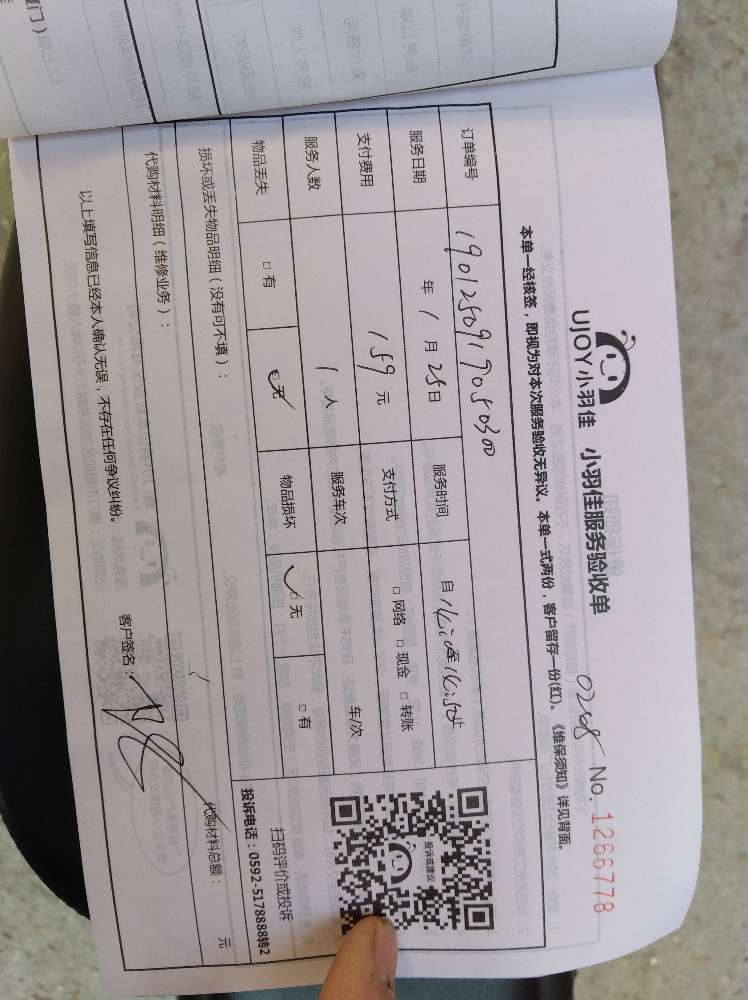 UJOY小羽佳 小羽佳服务验收单 No. 1266778
本单一经核签，即视为对本次服务验收无异议。本单一式两份，客户留存一份(红)。《维保须知》详见背面。
订单编号 1901250919050300
服务日期 年 1 月 25 日 服务时间 自
支付费用 159 元 支付方式 □ 网络 □ 现金 □ 转账
服务人数 1 人 服务车次 车/次
物品丢失 □ 有 □ 无 物品损坏 □ 无 □ 有
投诉或建议
扫码评价或投诉
投诉电话：0592-5178888转2
损坏或丢失物品明细（没有可不填）：
代购材料明细（维修业务）： 代购材料总额： 元
以上填写信息已经本人确认无误，不存在任何争议纠纷。 客户签名：